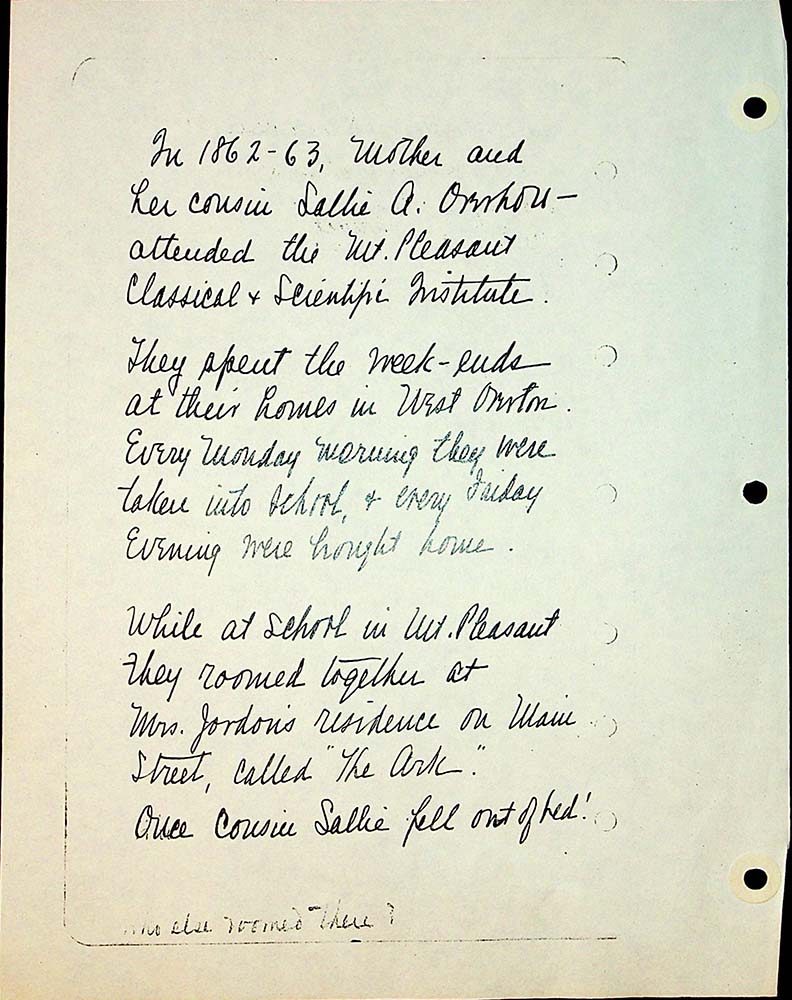 In 1862-63, Mother and
her cousin Sallie A. Overholt
attended the Mt. Pleasant
Classical & Scientific Institute.
They spent the week-ends
at their homes in West Overton.
Every Monday morning they were
taken into school, & every Friday
Evening were brought home.
While at school in Mt. Pleasant
they roomed together at
Mrs. Jordon's residence on Main
Street, called "The Ark".
Once Cousin Sallie fell out of bed!
Who else roomed there?